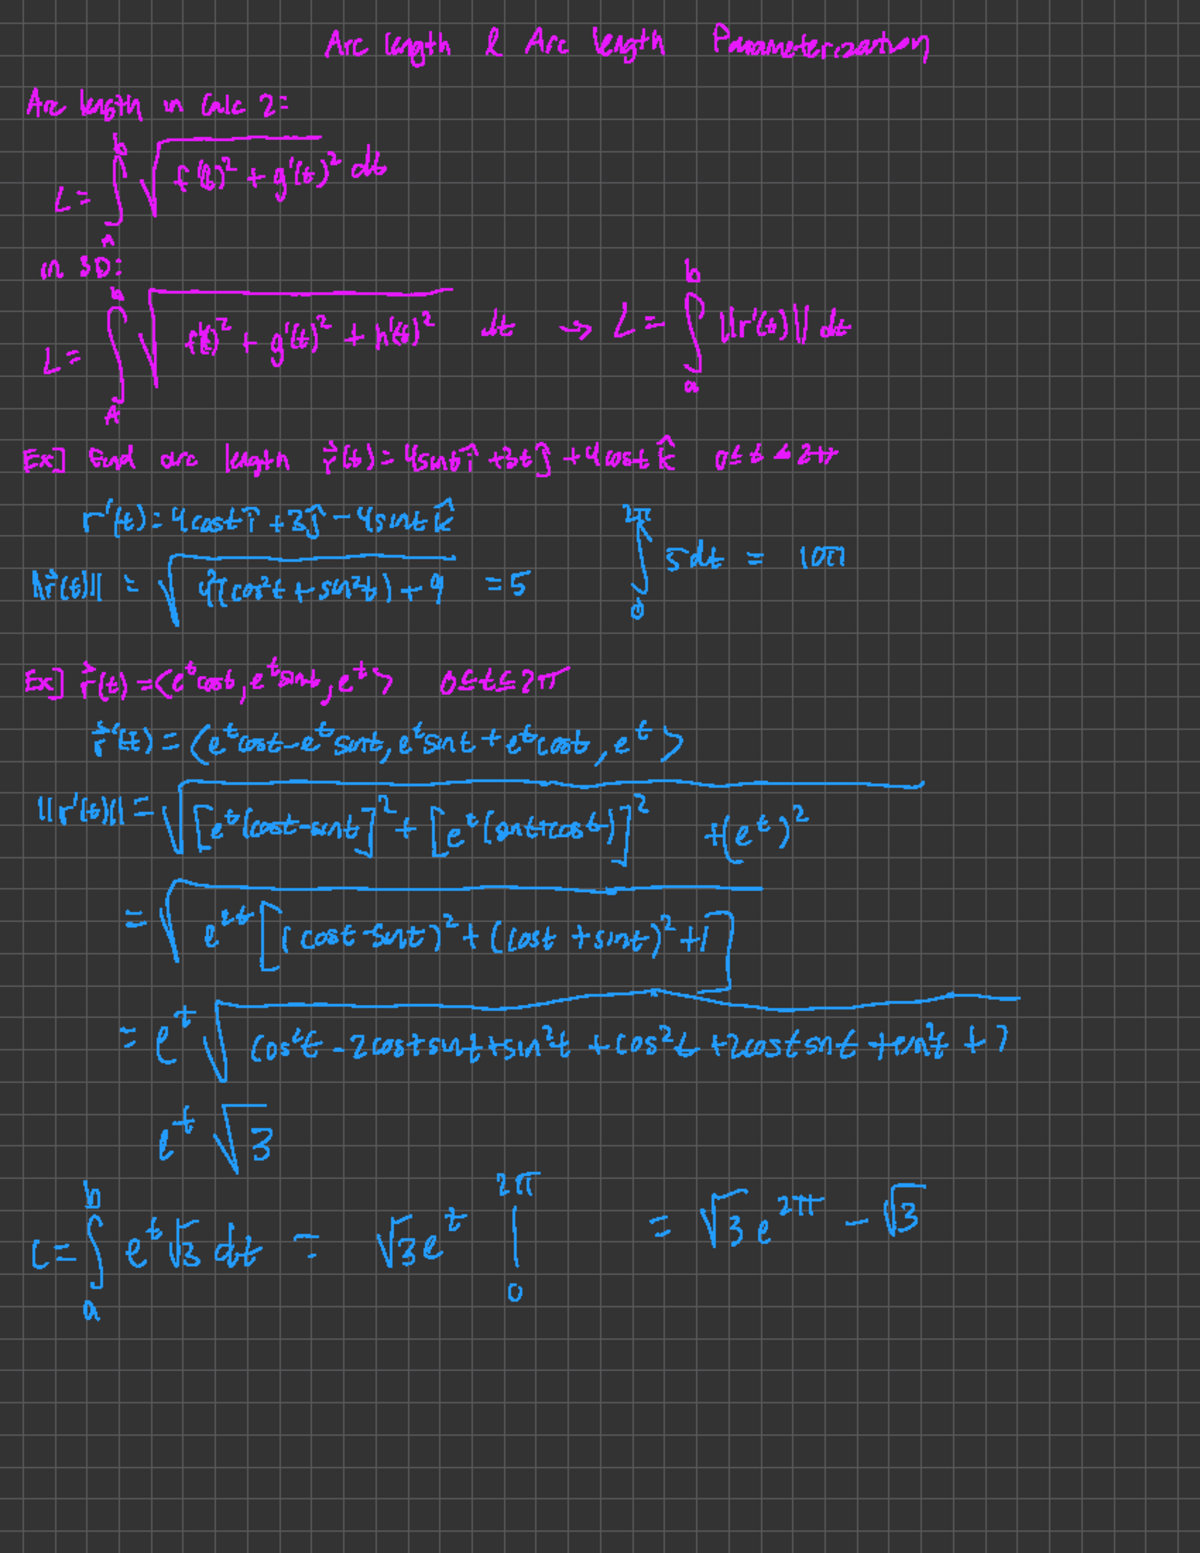 Arc length & Arc length Parameterization
Arc length in Calc 2:
L = ∫_a^b √(f'(t)² + g'(t)²) dt
in 3D:
L = ∫_A^b √(f'(t)² + g'(t)² + h'(t)²) dt → L = ∫_a^b ||r'(t)|| dt
Ex] Find arc length r⃗(t) = 4sint î + 3t ĵ + 4cost k̂ 0 ≤ t ≤ 2π
r'(t) = 4cost î + 3ĵ - 4sint k̂
||r⃗'(t)|| = √(4²(cos²t + sin²t) + 9) = 5 ∫_0^{2π} 5dt = 10π
Ex] r⃗(t) = <e^t cost, e^t sint, e^t> 0 ≤ t ≤ 2π
r⃗'(t) = <e^t cost - e^t sint, e^t sint + e^t cost, e^t>
||r'(t)|| = √([e^t(cost - sint]² + [e^t(sint + cost)]² + (e^t)²)
= √(e^{2t}[(cost - sint)² + (cost + sint)² + 1])
= e^t √(cos²t - 2costsint + sin²t + cos²t + 2costsint + sin²t + 1)
e^t √3
L = ∫_a^b e^t √3 dt = √3 e^t |_0^{2π} = √3 e^{2π} - √3